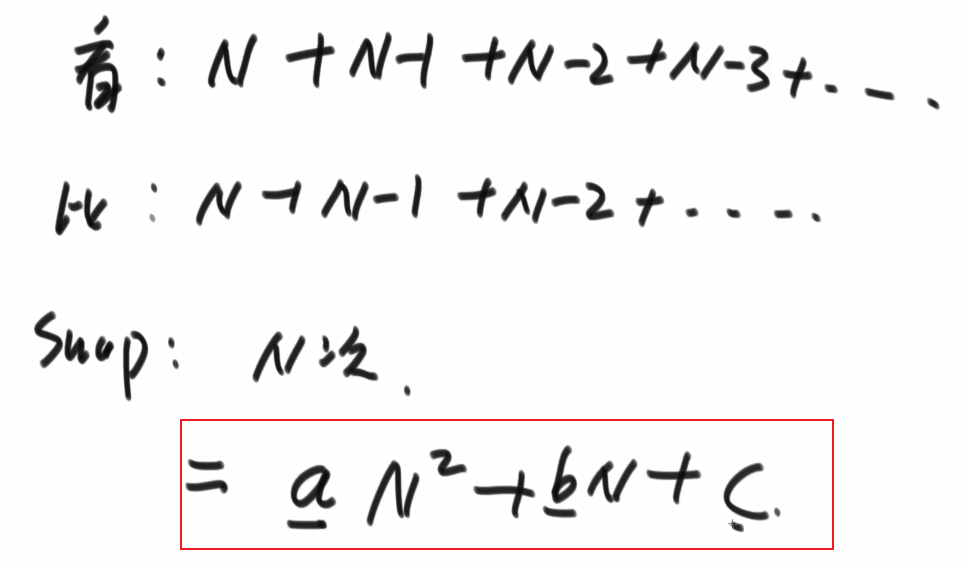 看: N + N-1 + N-2 + N-3 + ....
比: N + N-1 + N-2 + ....
Swap: N次.
= a N² + bN + C.